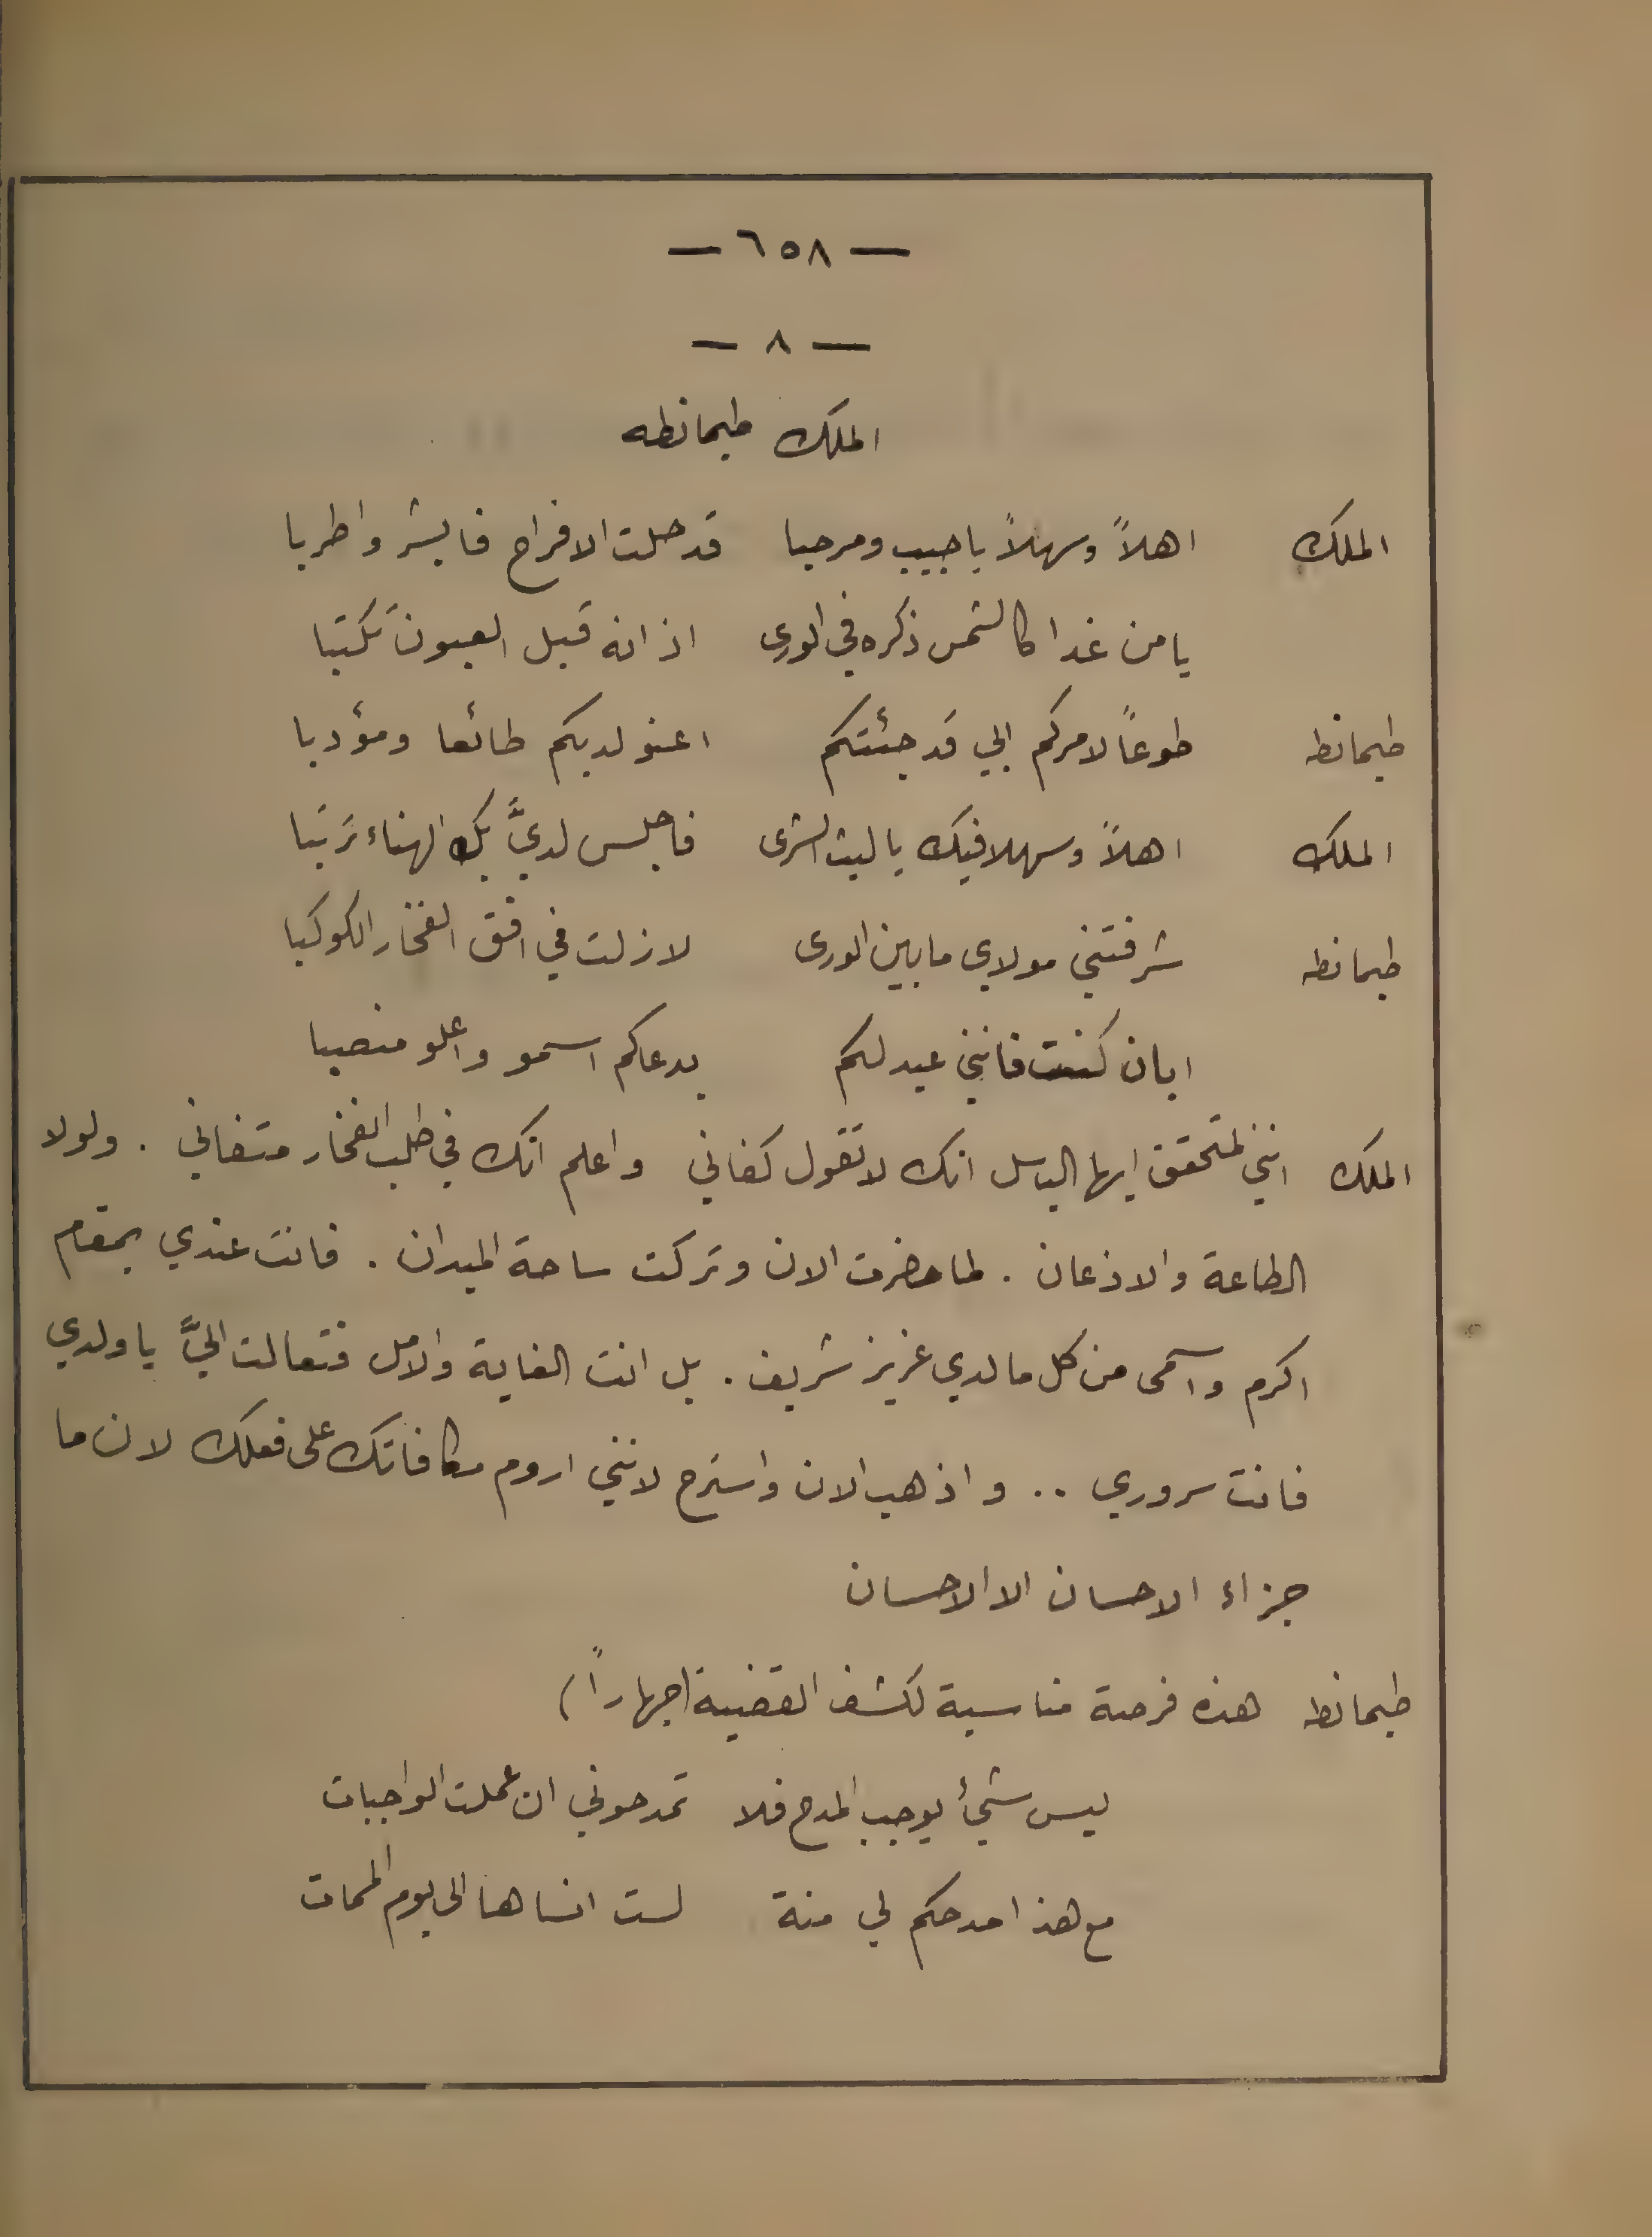 — ٦٥٨ —
— ٨ —
الملك طيمانطه
الملك اهلاً وسهلاً يا حبيب ومرحبا قد حلت الافراح فابشر واطربا
يا من غدا كالشمس ذكره في الورى اذ انه قبل العيون تكتبا
طيمانطه طوعاً لامركم الي قد جئتكم اعنو لديكم طائعا ومؤدبا
الملك اهلاً وسهلا فيك يا ليث الشرى فاجلس لديَّ بك الهناء ترتبا
طيمانطه شرفتني مولاي ما بين الورى لا زلت في افق الفخار الكوكبا
ايان كنت فانني عبد لكم بدعاكم اسمو واعلو منصبا
الملك انني لمتحقق ايها الباسل انك لا تقول كفاني واعلم انك في طلب الفخار متفاني . ولولا
الطاعة والاذعان . لما حضرت الان وتركت ساحة الميدان . فانت عندي بمقام
اكرم واسمى من كل ما لدي عزيز شريف . بل انت الغاية والامل فتعالت اليَّ يا ولدي
فانت سروري .. واذهب الان واسترح لانني اروم مكافاتك على فعلك لان ما
جزاء الاحسان الا الاحسان
طيمانطه هذه فرصة مناسبة لكشف القضية (جهاراً)
ليس شيئأ يوجب المدح فلا تمدحوني ان عملت الواجبات
مع هذا مدحكم لي منة لست انساها الى يوم الممات